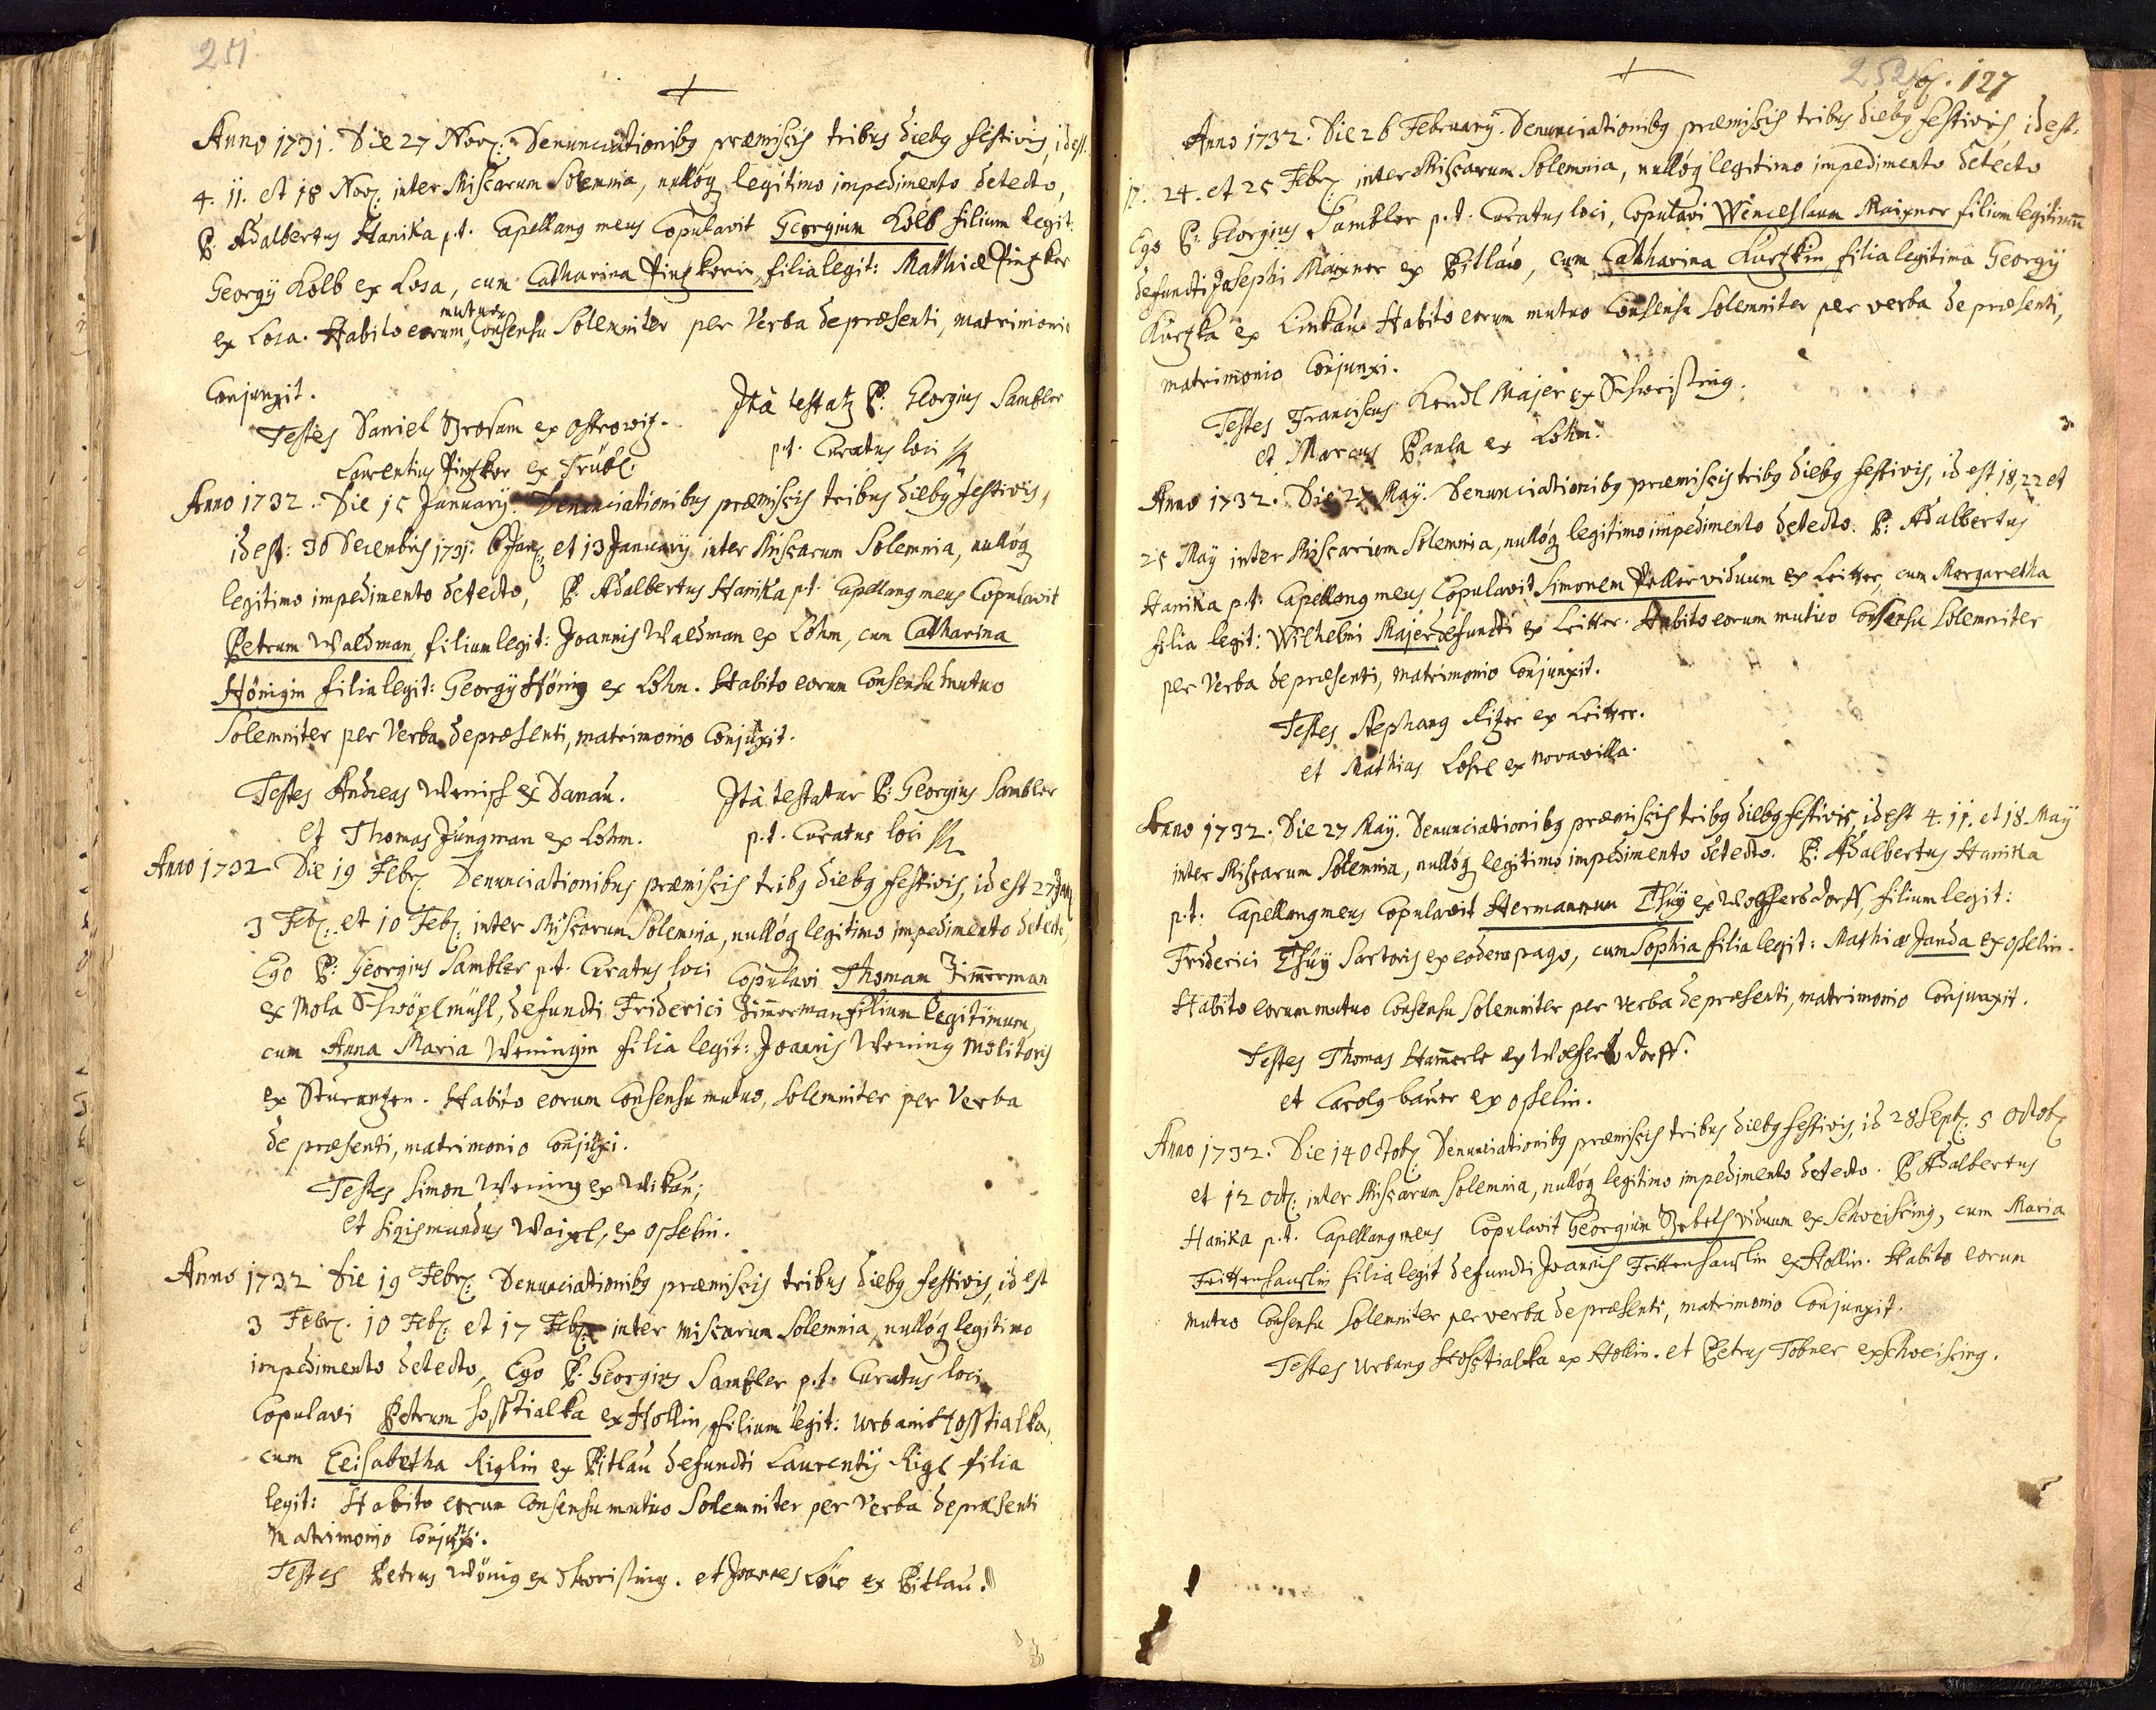 251.
Anno 1731. Die 27 Nov: Denunciationibq præmissis tribus diebq festivis, id est.
4. 11. et 18 Nov: inter Missarum Solemnia, nullóq legitimo impedimento detecto,
P: Adalbertus Hanika p.t. Capellanq meus Copulavit Georgium Kolb filium legit:
Georgÿ Kolb ex Losa, cum Catharina filia legit: Mathiæ
ex Losa. Habito eorum mutuo Consensu Solemniter per Verba de præsenti, matrimonio
Conjunxit.
Testes Daniel ex Ostrowitz. Ità testatq P: Georgius Sambler
Laurentius ex Trübl. p.t. Curatus loci
Anno 1732. Die 15 Januarÿ. Denunciationibus præmissis tribus diebq festivis,
id est: 30 Decembris 1731. 6 Jan: et 13 Januarÿ inter Missarum Solemnia, nullóq
legitimo impedimento detecto, P. Adalbertus Hanika p.t. Capellanq meus Copulavit
Petrum Waldman, filium legit: Joannis Waldman ex Lohm, cum Catharina
Hönigin filia legit: Georgÿ Hönig ex Lohm. Habito eorum Consensu mutuo
Solemniter per Verba de præsenti, matrimonio Conjunxit.
Testes Andreas Wenisch ex Danaú. Ità testatur P: Georgius Sambler
et Thomas Jungman ex Lohm. p.t. Curatus loci
Anno 1732 Die 19 Febr: Denunciationibus præmissis tribq diebq festivis, id est 27 Jan:
3 Feb: et 10 Feb: inter Missarum Solemnia, nullóq legitimo impedimento detecto,
Ego P: Georgius Sambler p.t. Curatus loci Copulavi Thomam Zimmerman
ex Mola defuncti Friderici Zimmerman filium legitimum,
cum Anna Maria Weningin filia legit: Joannis Wening Molitoris
ex Habito eorum Consensu mutuo, solemniter per Verba
de præsenti, matrimonio Conjunxi.
Testes Simon Wening ex Wikaú;
et Sigismundus Waixl, ex Osselin.
Anno 1732 Die 19 Febr: Denunciationibq præmissis tribus diebq festivis, id est
3 Febr. 10 Feb: et 17 Feb: inter missarum Solemnia, nullóq legitimo
impedimento detecto, Ego P. Georgius Sambler p.t. Curatus loci
Copulavi Petrum Hosstialka ex Hollin, filium legit: Urbani Hosstialka,
cum Elisabetha Riglin ex Pitlaú defuncti Laurentÿ Rigl filia
legit: Habito eorum Consensu mutuo Solemniter per Verba de præsenti
Matrimonio Conjunxi.
Testes Petrus Wönig ex et Joannes Löw ex Pitlaú.
252 127
Anno 1732. Die 26 Februarÿ. Denunciationibq præmissis tribus diebq festivis, id est.
17. 24. et 25 Febr: inter Missarum Solemnia, nullóq legitimo impedimento detecto
Ego P: Georgius Sambler p.t. Curatus loci, Copulavi Wenceslaum Maixner filium legitimum
defuncti Josephi Maixner ex Pitlaw, cum Catharina Kurtzkin filia legitima Georgÿ
Kurtzka ex Linkaú. Habito eorum mutuo Consensu solemniter per verba de præsenti,
matrimonio Conjunxi.
Testes Franciscus Kendl Majer ex Schweissing.
et Marcus Paula ex Lohm.
Anno 1732. Die 27 Maÿ. Denunciationibq præmissis tribq diebq festivis, id est 18, 22 et
25 Maÿ inter Missarum Solemnia, nullóq legitimo impedimento detecto. P: Adalbertus
Hanika p.t. Capellanq meus Copulavit Simonem viduum ex Leitter, cum Margaretha
filia legit: Wilhelmi Majer defuncti ex Leitter. Habito eorum mutuo Consensu Solemniter
per Verba de præsenti, matrimonio Conjunxit.
Testes Stephanq Ritzer ex Leitter.
et Mathias Losrl ex novavilla.
Anno 1732. Die 27 Maÿ. Denunciationibq præmissis tribq diebq festivis, id est 4. 11. et 18 Maÿ
inter Missarum Solemnia, nullóq legitimo impedimento detecto. P: Adalbertus Hanika
p.t. Capellanq meus Copulavit Hermannum Thúÿ ex Wolffersdorff, filium legit:
Friderici Thúÿ Sartoris ex eodem pago, cum Sophia filia legit: Mathiæ Janda ex Osselin.
Habito eorum mutuo Consensu solemniter per verba de præsenti, matrimonio Conjunxit.
Testes Thomas Hammerle ex Wolfersdorff.
et Carolq baúer ex Osselin.
Anno 1732. Die 14 Octob: Denunciationibq præmissis tribus diebq festivis, id 28 Sept: 5 Octob:
et 12 Oct: inter Missarum Solemnia, nullóq legitimo impedimento detecto. P. Adalbertus
Hanika p.t. Capellanq meus Copulavit Georgium viduum ex Schweissing, cum Maria
Frittenhanslin filia legit defuncti Joannis Frittenhanslin ex Hollin. Habito eorum
mutuo Consensu Solemniter per verba de præsenti, matrimonio Conjunxit.
Testes Urbanq Hosstialka ex Hollin. et Petrus Tobner ex Schweissing.